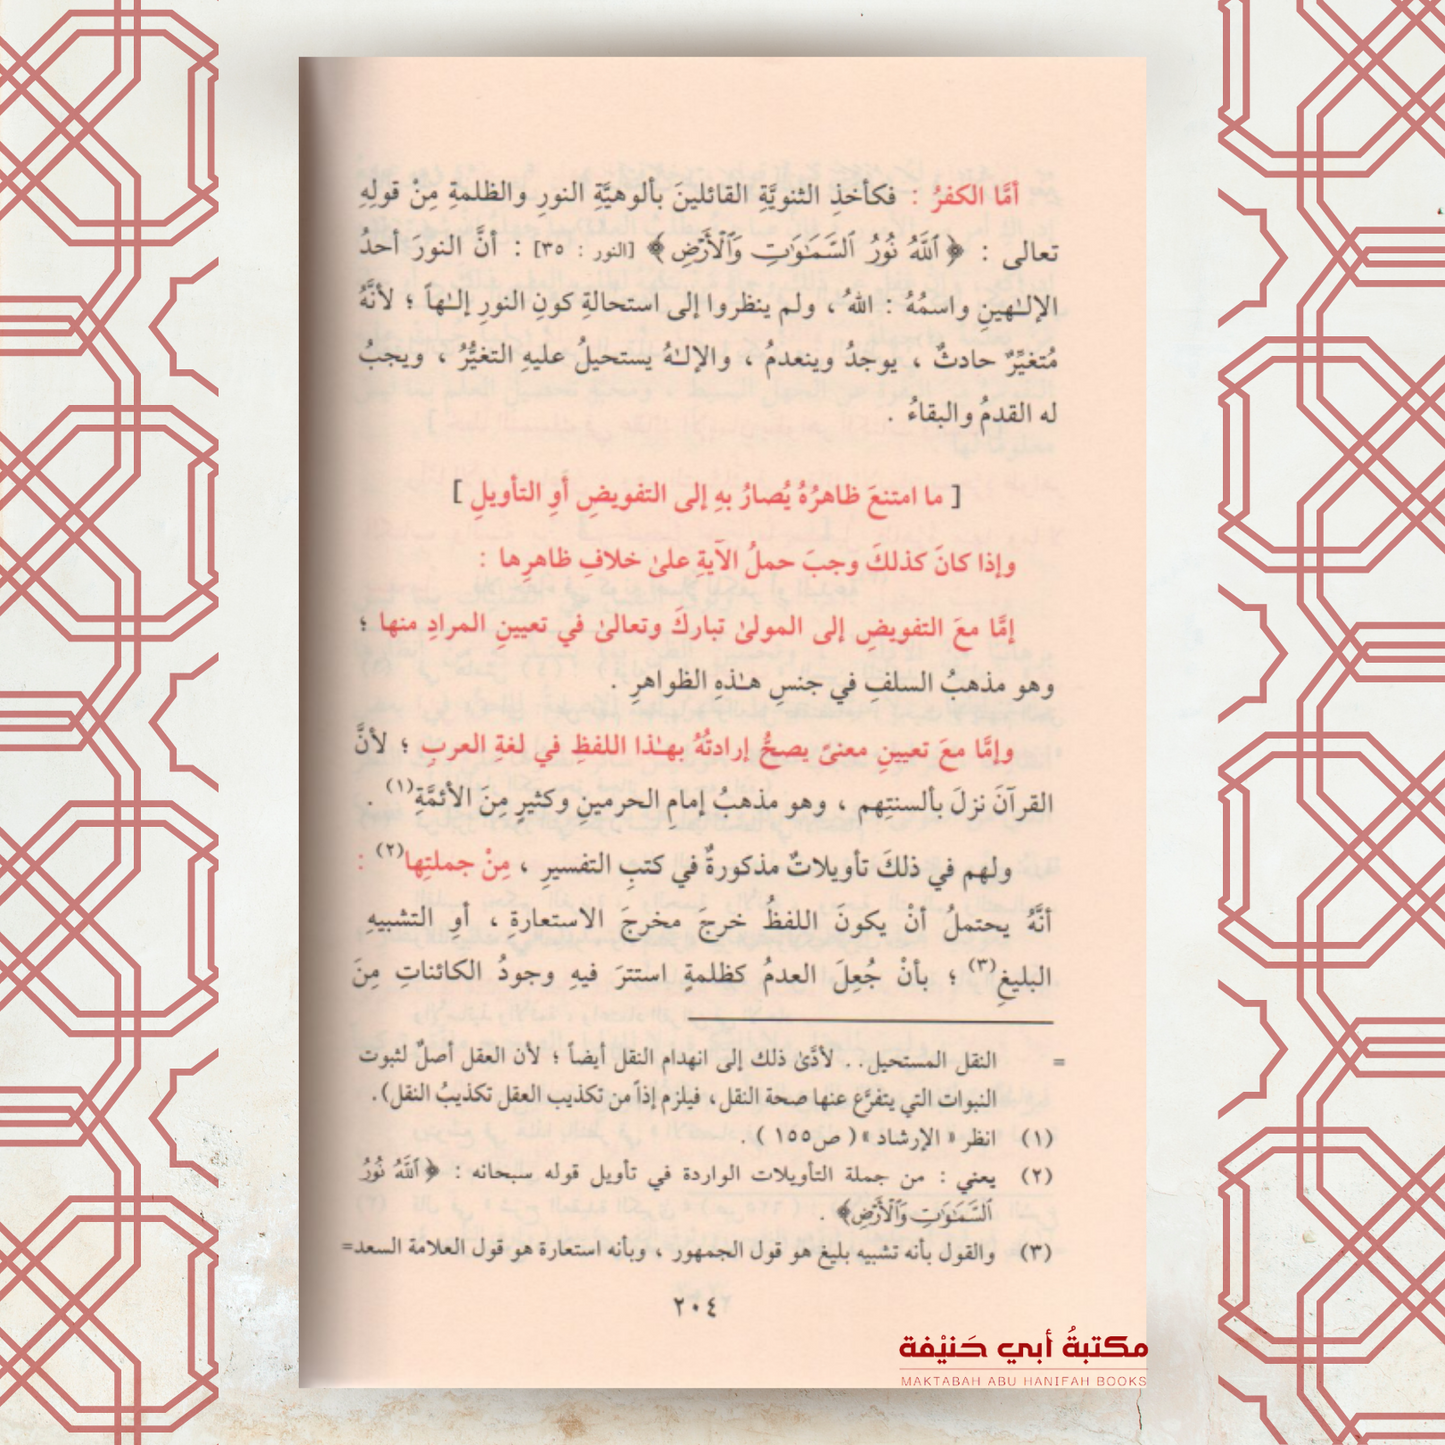 أمَّا الكفرُ : فكأخذِ الثنويَّةِ القائلينَ بألوهيَّةِ النورِ والظلمةِ مِنْ قولِهِ
تعالى : ﴿ ٱللَّهُ نُورُ ٱلسَّمَـٰوَٰتِ وَٱلْأَرْضِ ﴾ [النور : ٣٥] : أنَّ النورَ أحدُ
الإلـٰهينِ واسمُهُ : اللهُ ، ولم ينظروا إلى استحالةِ كونِ النورِ إلـٰهاً ؛ لأنَّهُ
مُتغيِّرٌ حادثٌ ، يوجدُ وينعدمُ ، والإلـٰهُ يستحيلُ عليهِ التغيُّرُ ، ويجبُ
له القدمُ والبقاءُ .
[ ما امتنعَ ظاهرُهُ يُصارُ بهِ إلى التفويضِ أوِ التأويلِ ]
وإذا كانَ كذلكَ وجبَ حملُ الآيةِ علىٰ خلافِ ظاهرِها :
إمَّا معَ التفويضِ إلى المولىٰ تباركَ وتعالىٰ في تعيينِ المرادِ منها ؛
وهو مذهبُ السلفِ في جنسِ هـٰذهِ الظواهرِ .
وإمَّا معَ تعيينِ معنىً يصحُّ إرادتُهُ بهـٰذا اللفظِ في لغةِ العربِ ؛ لأنَّ
القرآنَ نزلَ بألسنتِهم ، وهو مذهبُ إمامِ الحرمينِ وكثيرٍ مِنَ الأئمَّةِ(١) .
ولهم في ذلكَ تأويلاتٌ مذكورةٌ في كتبِ التفسيرِ ، مِنْ جملتِها(٢) :
أنَّهُ يحتملُ أنْ يكونَ اللفظُ خرجَ مخرجَ الاستعارةِ ، أوِ التشبيهِ
البليغِ(٣) ؛ بأنْ جُعِلَ العدمُ كظلمةٍ استترَ فيهِ وجودُ الكائناتِ مِنَ
= النقل المستحيل.. لأدَّىٰ ذلك إلى انهدام النقل أيضاً ؛ لأن العقل أصلٌ لثبوت
النبوات التي يتفرَّع عنها صحة النقل، فيلزم إذاً من تكذيب العقل تكذيبُ النقل).
(١) انظر « الإرشاد » ( ص١٥٥ ) .
(٢) يعني : من جملة التأويلات الواردة في تأويل قوله سبحانه : ﴿ ٱللَّهُ نُورُ
ٱلسَّمَـٰوَٰتِ وَٱلْأَرْضِ ﴾ .
(٣) والقول بأنه تشبيه بليغ هو قول الجمهور ، وبأنه استعارة هو قول العلامة السعد=
٢٠٤
مكتبةُ أبي حَنيْفة
MAKTABAH ABU HANIFAH BOOKS